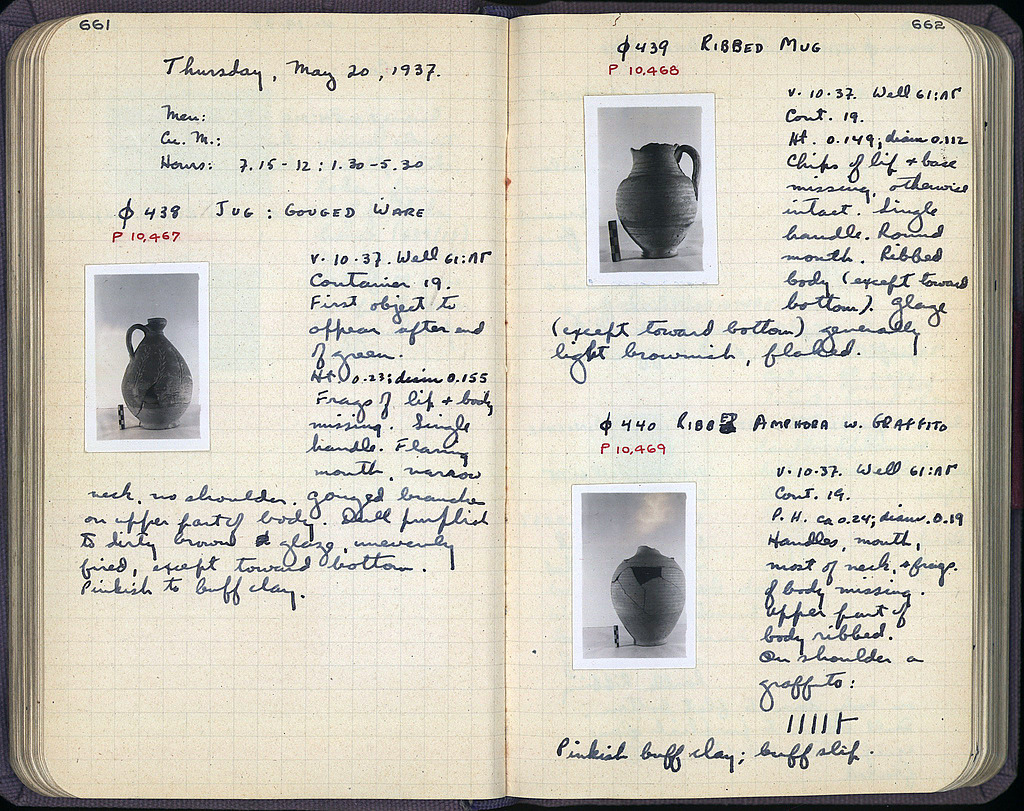 661
Thursday, May 20, 1937.
Men:
Cu. M.:
Hours: 7.15-12 : 1.30-5.30
ϕ 438 JUG : GOUGED WARE
P 10,467
V. 10.37. Well 61:ΛΓ
Container 19.
First object to
appear after end
of green.
Ht. 0.23; diam 0.155
Frags of lip + body
missing. Single
handle. Flaring
mouth, narrow
neck, no shoulder. Gouged branches
on upper part of body. Dull purplish
to dirty brown glaze, unevenly
fired, except toward bottom.
Pinkish to buff clay.
662
ϕ 439 RIBBED MUG
P 10,468
V. 10.37. Well 61:ΛΓ
Cont. 19.
Ht. 0.149; diam 0.112
Chips of lip + base
missing, otherwise
intact. Single
handle. Round
mouth. Ribbed
body (except toward
bottom). Glaze
(except toward bottom) generally
light brownish, flaked.
ϕ 440 RIBBED AMPHORA W. GRAFFITO
P 10,469
V. 10.37. Well 61:ΛΓ
Cont. 19.
P. H. ca 0.24; diam. 0.19
Handles, mouth,
most of neck, + frags.
of body missing.
Upper part of
body ribbed.
On shoulder a
graffito:
IIIII⊢
Pinkish buff clay; buff slip.